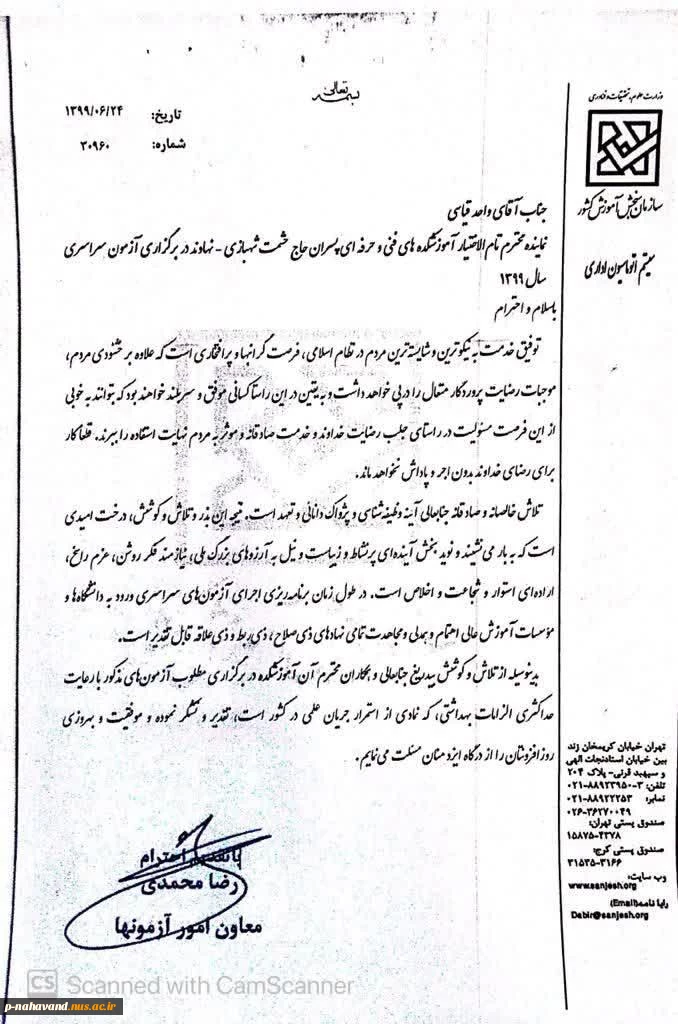 بسمه تعالی
تاریخ: ۱۳۹۹/۰۶/۲۴
شماره: ۳۰۹۶۰
وزارت علوم، تحقیقات و فناوری
سازمان سنجش آموزش کشور
سیستم اتوماسیون اداری
جناب آقای واحد قیاسی
نماینده محترم تام الاختیار آموزشکده های فنی و حرفه ای پسران حاج حشمت شهبازی - نهاوند در برگزاری آزمون سراسری
سال ۱۳۹۹
باسلام و احترام
توفیق خدمت به نیکوترین و شایسته‌ترین مردم در نظام اسلامی، فرصت گرانبها و پرافتخاری است که علاوه بر خشنودی مردم،
موجبات رضایت پروردگار متعال را در پی خواهد داشت و به یقین در این راستا کسانی موفق و سربلند خواهند بود که بتوانند به خوبی
از این فرصت مسئولیت در راستای جلب رضایت خداوند و خدمت صادقانه و موثر به مردم نهایت استفاده را ببرند. قطعا کار
برای رضای خداوند بدون اجر و پاداش نخواهد ماند.
تلاش خالصانه و صادقانه جنابعالی آینه وظیفه‌شناسی و پژواک دانائی و تعهد است. نتیجه این بذر و تلاش و کوشش، درخت امیدی
است که به بار می‌نشیند و نوید بخش آینده‌ای پرنشاط و زیباست و نیل به آرزوهای بزرگ ملی، نیازمند فکر روشن، عزم راسخ،
اراده‌ای استوار و شجاعت و اخلاص است. در طول زمان برنامه‌ریزی اجرای آزمون‌های سراسری ورود به دانشگاه‌ها و
مؤسسات آموزش عالی اهتمام و همدلی و مجاهدت تمامی نهادهای ذی صلاح، ذی ربط و ذی علاقه قابل تقدیر است.
بدینوسیله از تلاش و کوشش بیدریغ جنابعالی و همکاران محترم آن آموزشکده در برگزاری مطلوب آزمون‌های مذکور با رعایت
حداکثری الزامات بهداشتی، که نمادی از استمرار جریان علمی در کشور است، تقدیر و تشکر نموده و موفقیت و بهروزی
روزافزونتان را از درگاه ایزد منان مسئلت می‌نمایم.
با تقدیم احترام
رضا محمدی
معاون امور آزمونها
تهران خیابان کریمخان زند
بین خیابان استادنجات الهی
و سپهبد قرنی- پلاک ۲۰۴
تلفن: ۳-۸۸۹۲۳۹۵۰-۰۲۱
نمابر: ۸۸۹۲۲۲۵۳-۰۲۱
۰۲۶-۳۶۲۷۰۰۴۹
صندوق پستی تهران:
۱۵۸۷۵-۴۳۷۸
صندوق پستی کرج:
۳۱۵۳۵-۳۱۶۶
وب سایت:
www.sanjesh.org
رایا نامه(Email)
Dabir@sanjesh.org
CS Scanned with CamScanner
p-nahavand.nus.ac.ir